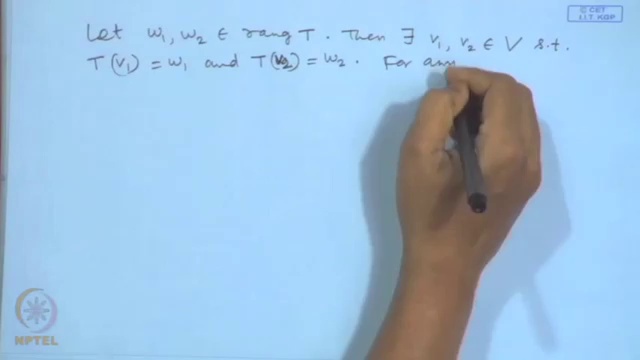 © CET
I.I.T. KGP
Let w₁, w₂ ∈ rang T. Then ∃ v₁, v₂ ∈ V s.t.
T(v₁) = w₁ and T(v₂) = w₂. For any
NPTEL